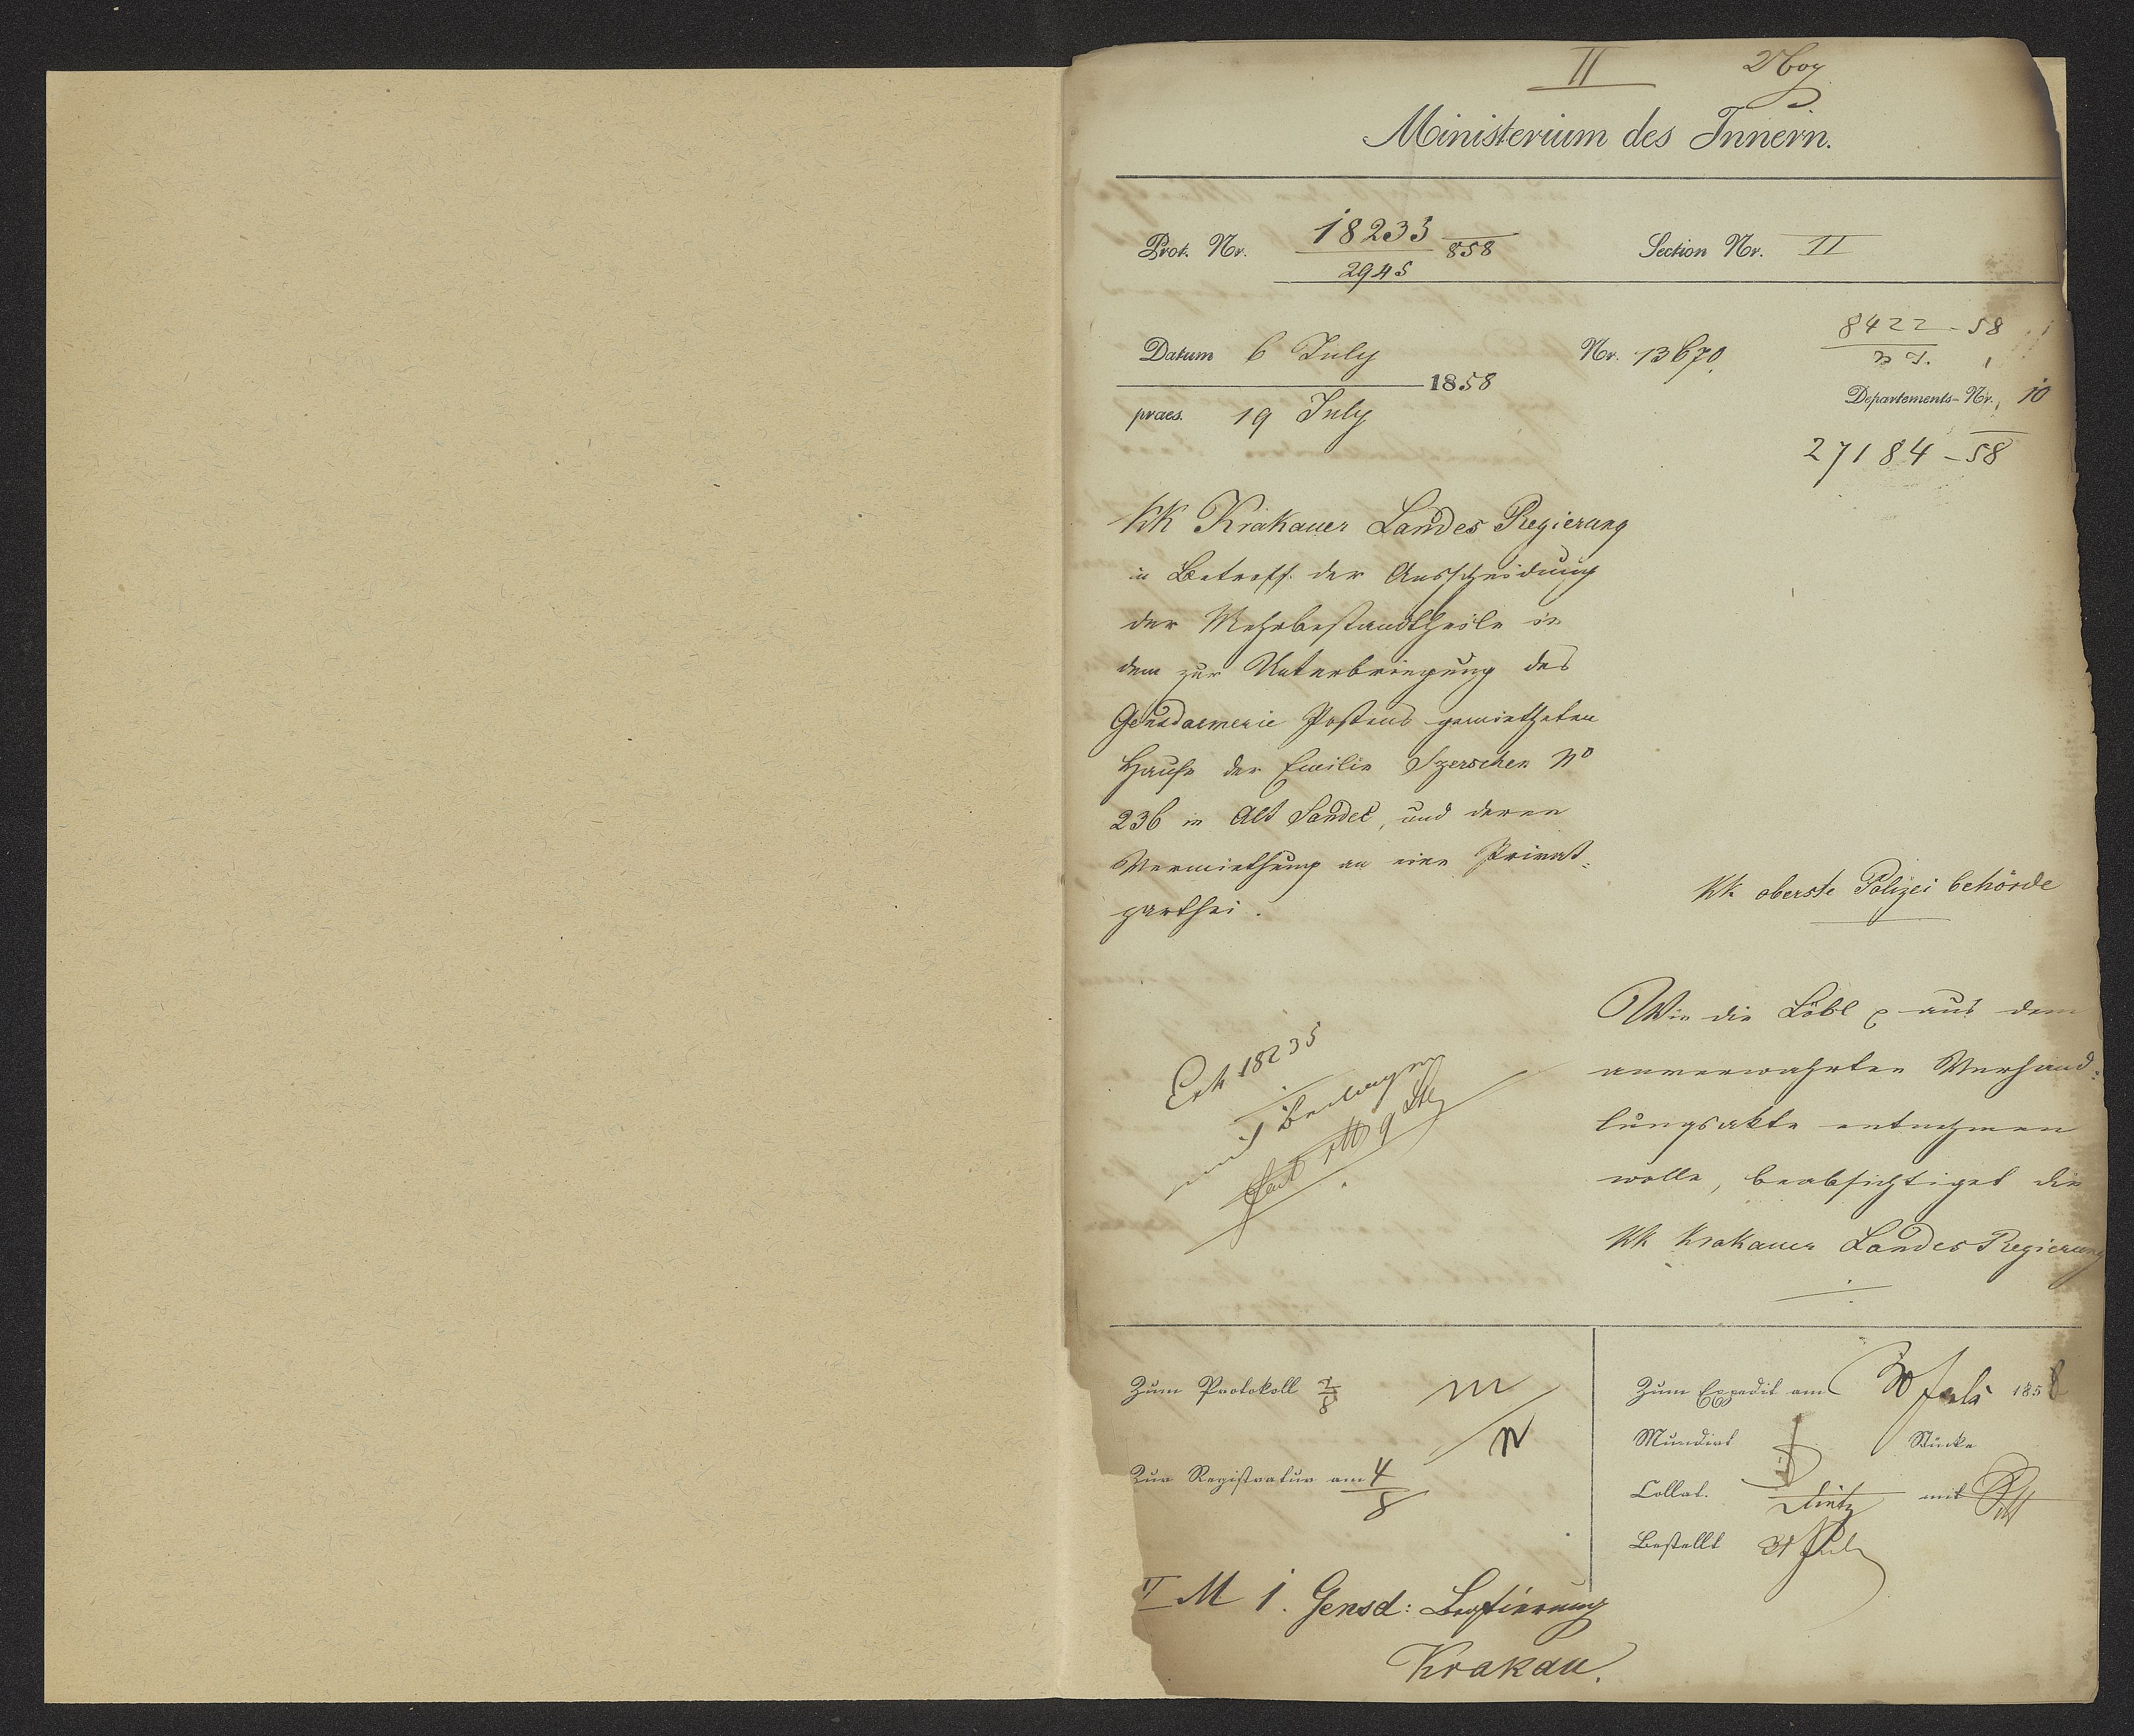 II
Ministerium des Innern.
Prot. Nr. 18233/2945 858 Section Nr. II
8422-58
Datum 6 July Nr. 13670.
1858
praes. 19 July
Departements-Nr. 10
27184-58
KK Krakauer Landes Regierung
in Betreff der Ausscheidung
der Mehrbestandtheile in
dem zur Unterbringung des
Gensdarmerie Postens gemietheten
Hause der Emilie Szerschen No
236 in Alt Sandec, und deren
Vermiethung an eine Privat-
parthei.
KK oberste Polizei behörde
Wie die Löbl aus dem
anverwahrten Verhand-
lungsakte entnehmen
wolle, beabsichtiget die
KK Krakauer Landes Regierung
Exh 18233
mit Beilagen
Zum Protokoll 2/8
Zur Registratur am 4/8
Zum Expedit am 30 Juli 1858
Mundirt Stücke
Collat. Dietz mit
Bestellt 31 Juli
II M 1. Gensd: Beqtierung
Krakau.